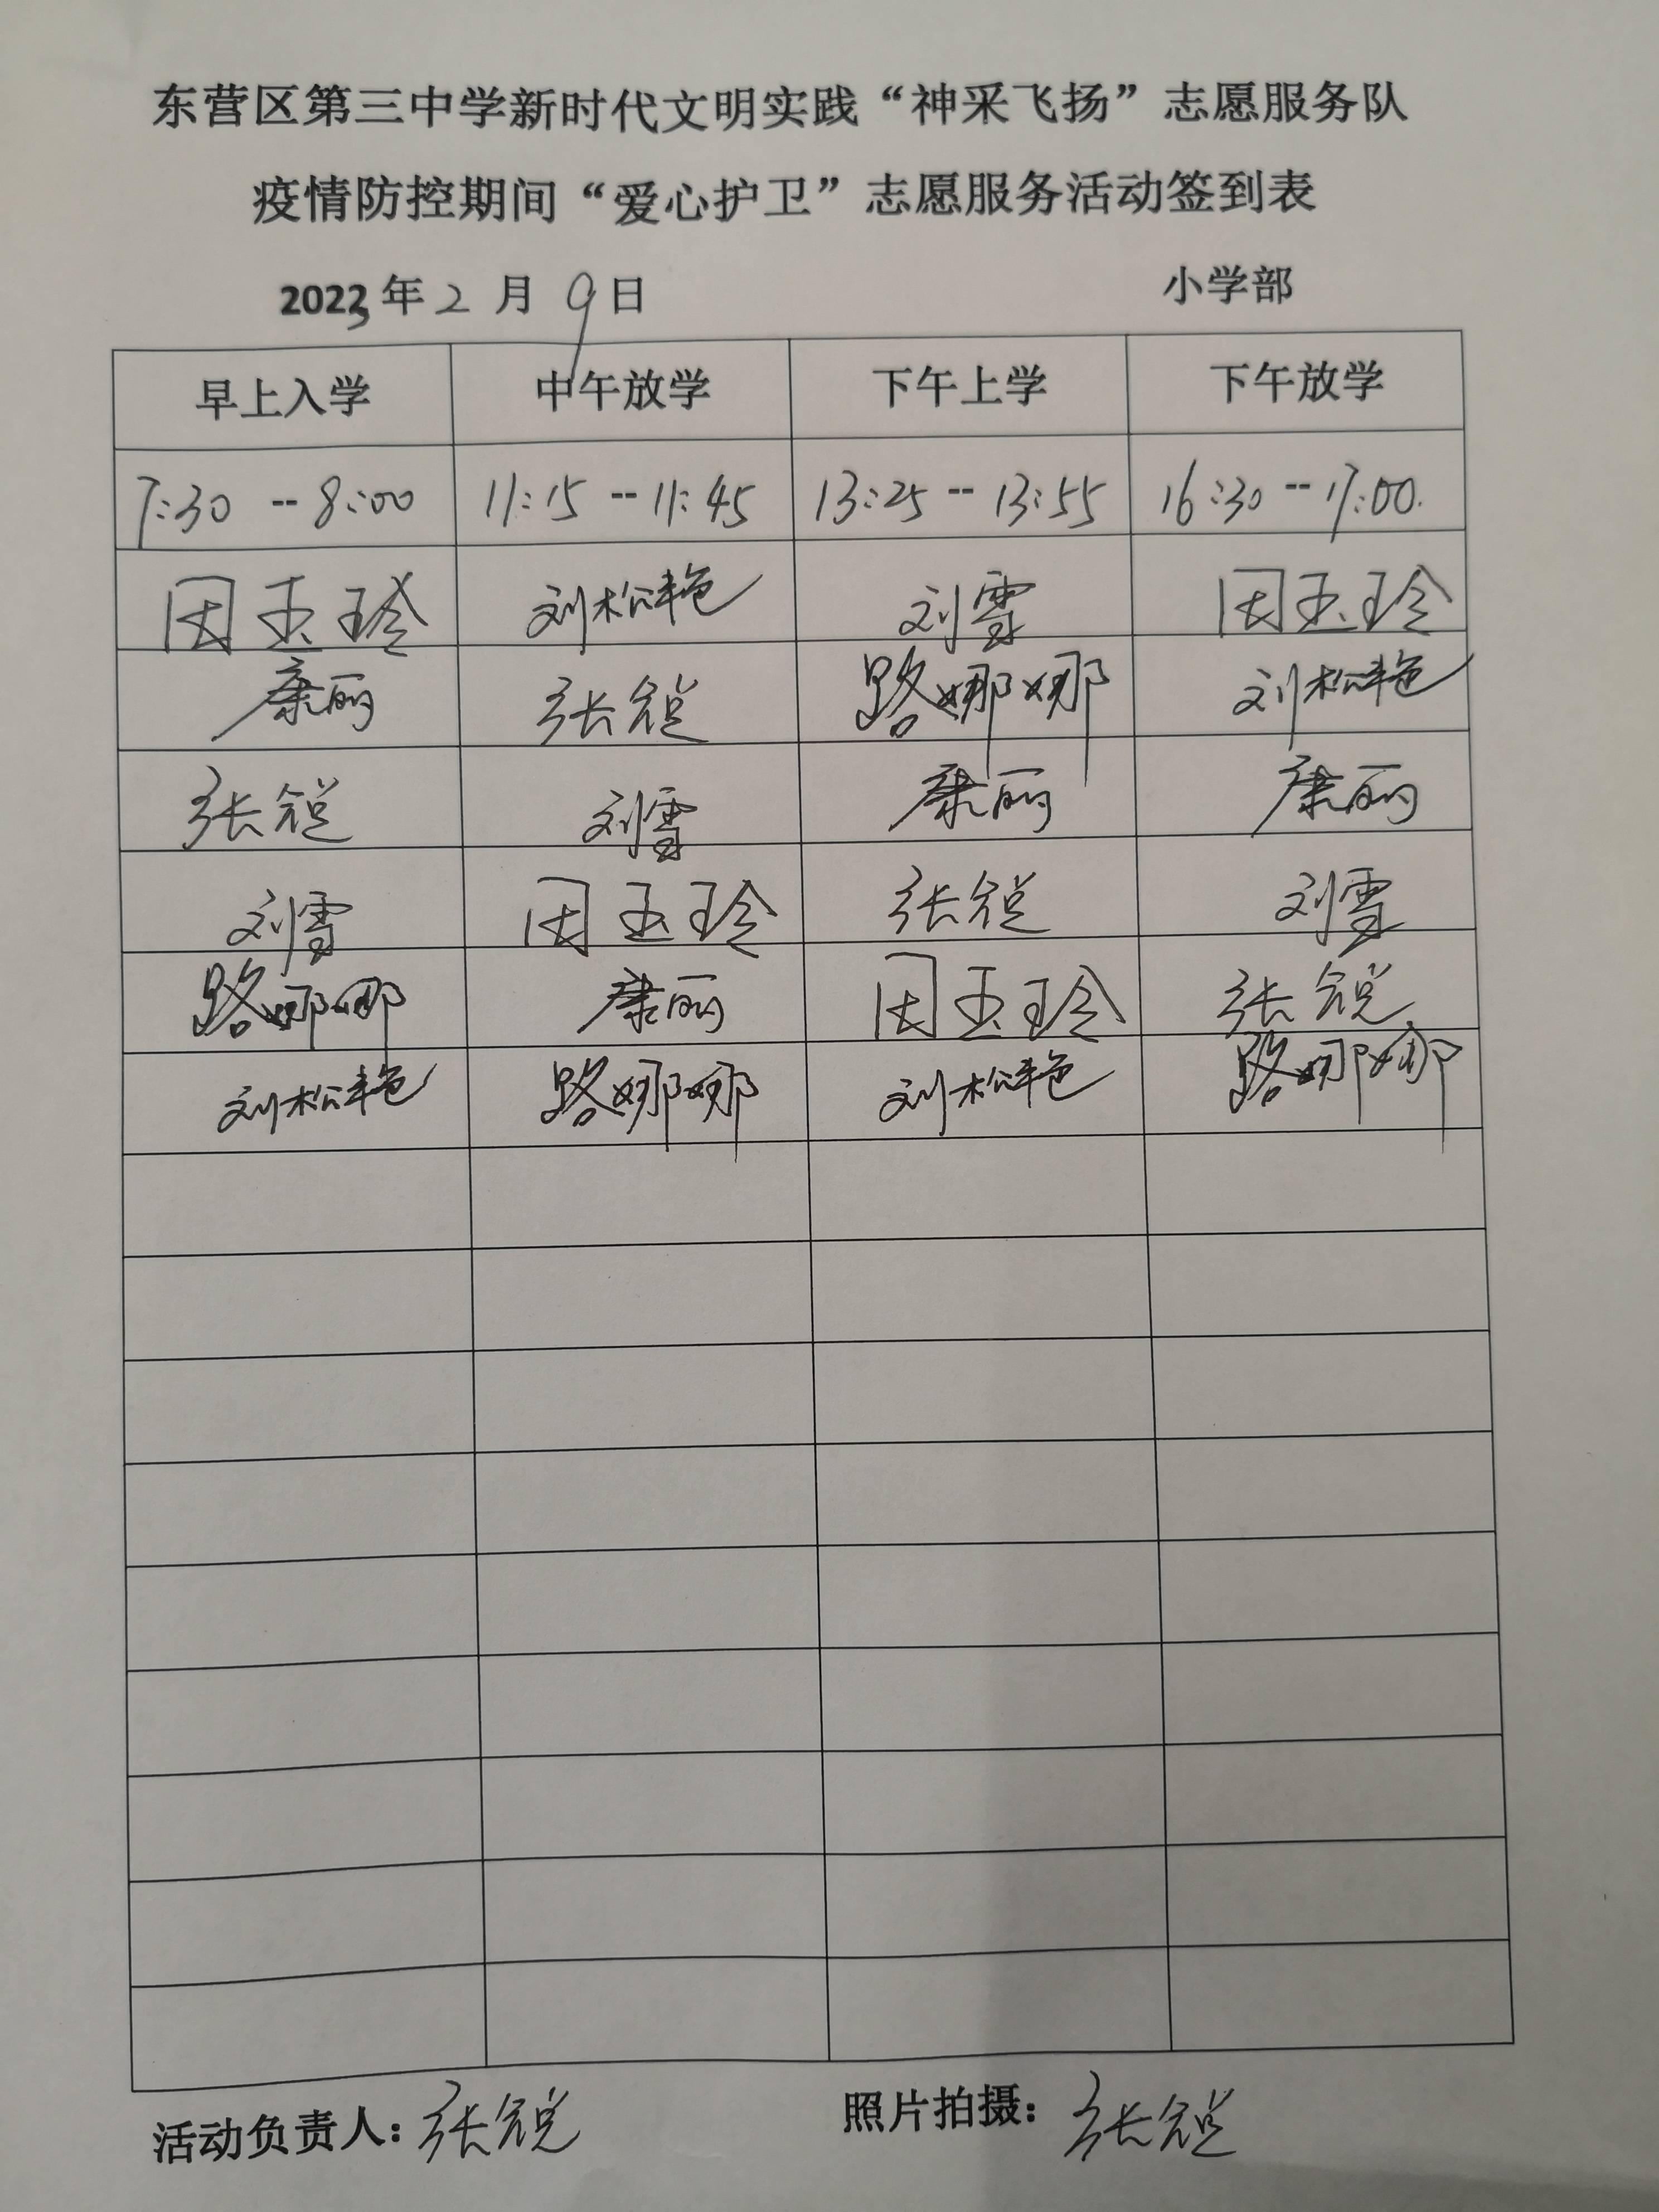 东营区第三中学新时代文明实践“神采飞扬”志愿服务队
疫情防控期间“爱心护卫”志愿服务活动签到表
2023年2月9日 小学部
早上入学 中午放学 下午上学 下午放学
7:30--8:00 11:15--11:45 13:25--13:55 16:30--17:00.
因玉玲 刘松艳 刘雪 因玉玲
康丽 张锐 路娜娜 刘松艳
张锐 刘雪 康丽 康丽
刘雪 因玉玲 张锐 刘雪
路娜娜 康丽 因玉玲 张锐
刘松艳 路娜娜 刘松艳 路娜娜
活动负责人：张锐 照片拍摄：张锐